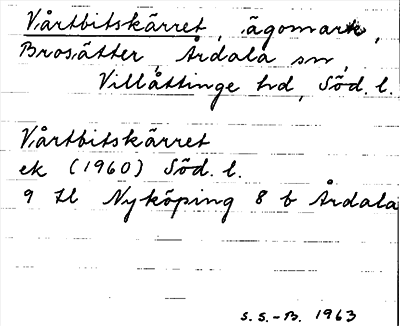 Vårtbitskärret, ägomark,
Brosätter, Årdala sn,
Villåttinge hd, Söd. l.
Vårtbitskärret
ek (1960) Söd. l.
9 H Nyköping 8 b Årdala
S. S.-B. 1963